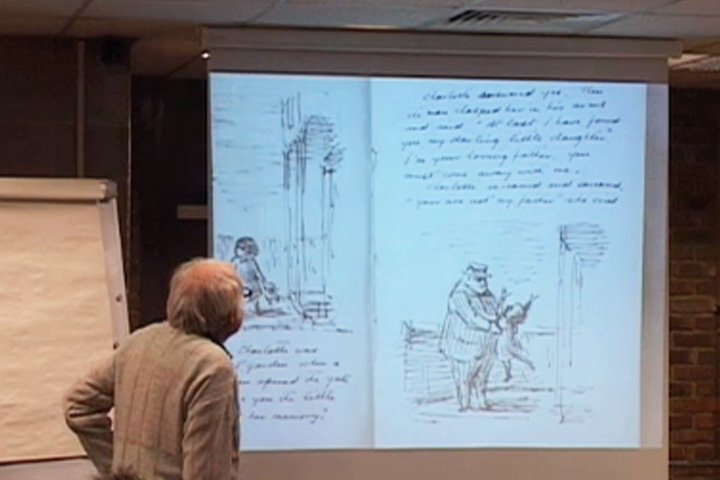 Charlotte was
garden when a
opened the gate
you the little
her memory?
Charlotte answered yes. Then
the man clasped her in his arms
and said "At last I have found
you my darling little daughter"
I'm your loving father, you
must come away with me.
Charlotte screamed and
"your are not my father" she